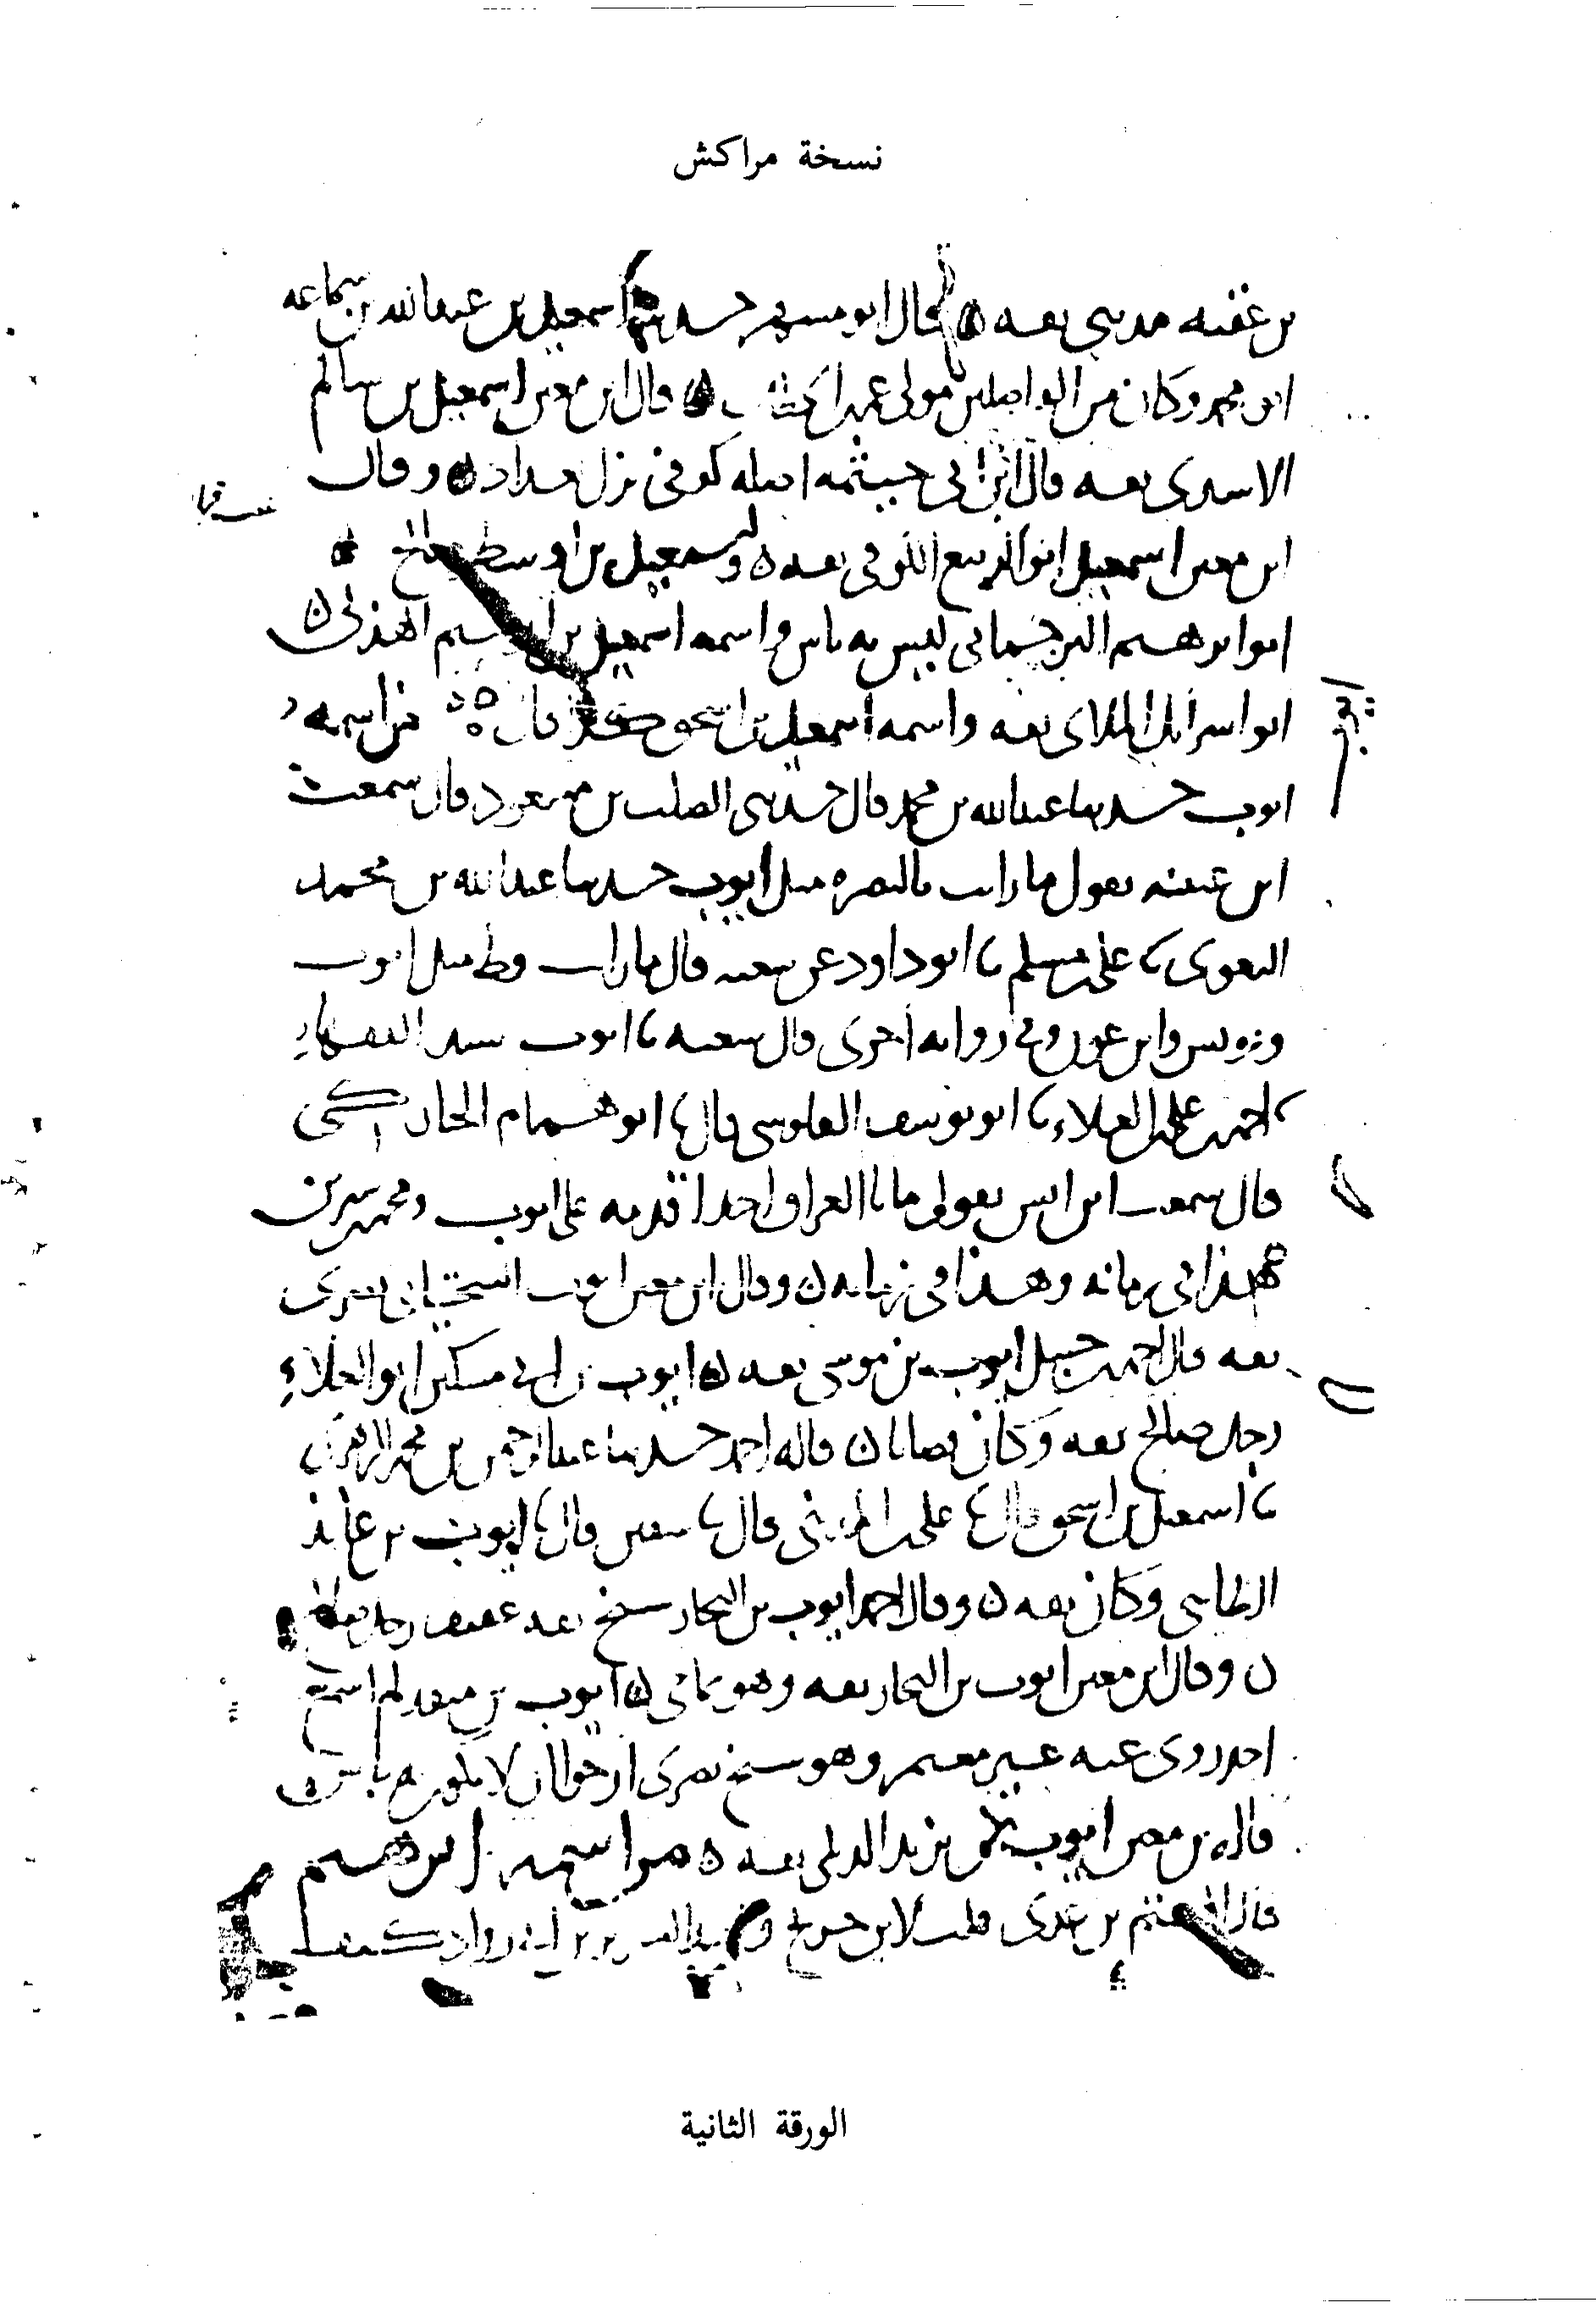 نسخة مراكش
بن عقبه مديني ثقه قال ابو مسهر حدثنا اسمعيل بن عبدالله بن سماعه
ابو محمد وكان من الفاضلين مولى عمر قال ابن معين اسمعيل بن سالم
الاسدى ثقه قال ابن ابى خيثمه اصله كوفى نزل بغداد وقال
ابن معين اسمعيل ابو الربيع الكوفى ثقه واسمعيل بن اوسط صالح
ابو ابرهيم الترجمانى ليس به باس واسمه اسمعيل بن ابرهيم الهذلى
ابو اسرائل الملائى ثقه واسمه اسمعيل بن اسحق قال من اسمه
ايوب حدثنا عبدالله بن محمد قال حدثنى الصلت بن مسعود قال سمعت
ابن عيينه يقول ما رايت بالبصره مثل ايوب حدثنا عبدالله بن محمد
البغوى نا على بن مسلم نا ابو داود عن شعبه قال ما رايت قط مثل ايوب
ويونس وابن عون وفى روايه اخرى قال شعبه نا ايوب سيد الفقهاء
نا احمد بن على بن العلاء نا ابو يوسف القلوسى قال نا ابو همام الخاركى
قال سمعت ابن انس يقول ما بالعراق احدا اقدمه على ايوب ومحمد بن سيرين
هذا فى زمانه وهذا فى زمانه وقال ابن معين ايوب السختيانى بصرى
ثقه قال احمد بن حنبل ايوب بن موسى ثقه ايوب بن ابى مسكين ابو العلاء
رجل صالح ثقه وكان قصابا قاله احمد حدثنا عبد الرحمن بن محمد الزهرى
نا اسمعيل بن اسحق قال نا على بن المدينى قال نا سفين قال نا ايوب بن عائذ
الطائى وكان ثقه وقال احمد ايوب بن النجار شيخ ثقه عفيف رجل صالح
وقال ابن معين ايوب بن النجار ثقه وهو يمانى ايوب بن لم اسمع
احدا روى عنه غير معتمر وهو شيخ بصرى ارجوا ان لا يكون به باس
قاله بن معين ايوب بن يزيد ثقه من اسمه ابرهيم
قال الهيثم بن عدى قلت لابن جريج وعبد العزيز بن ابى رواد
الورقة الثانية